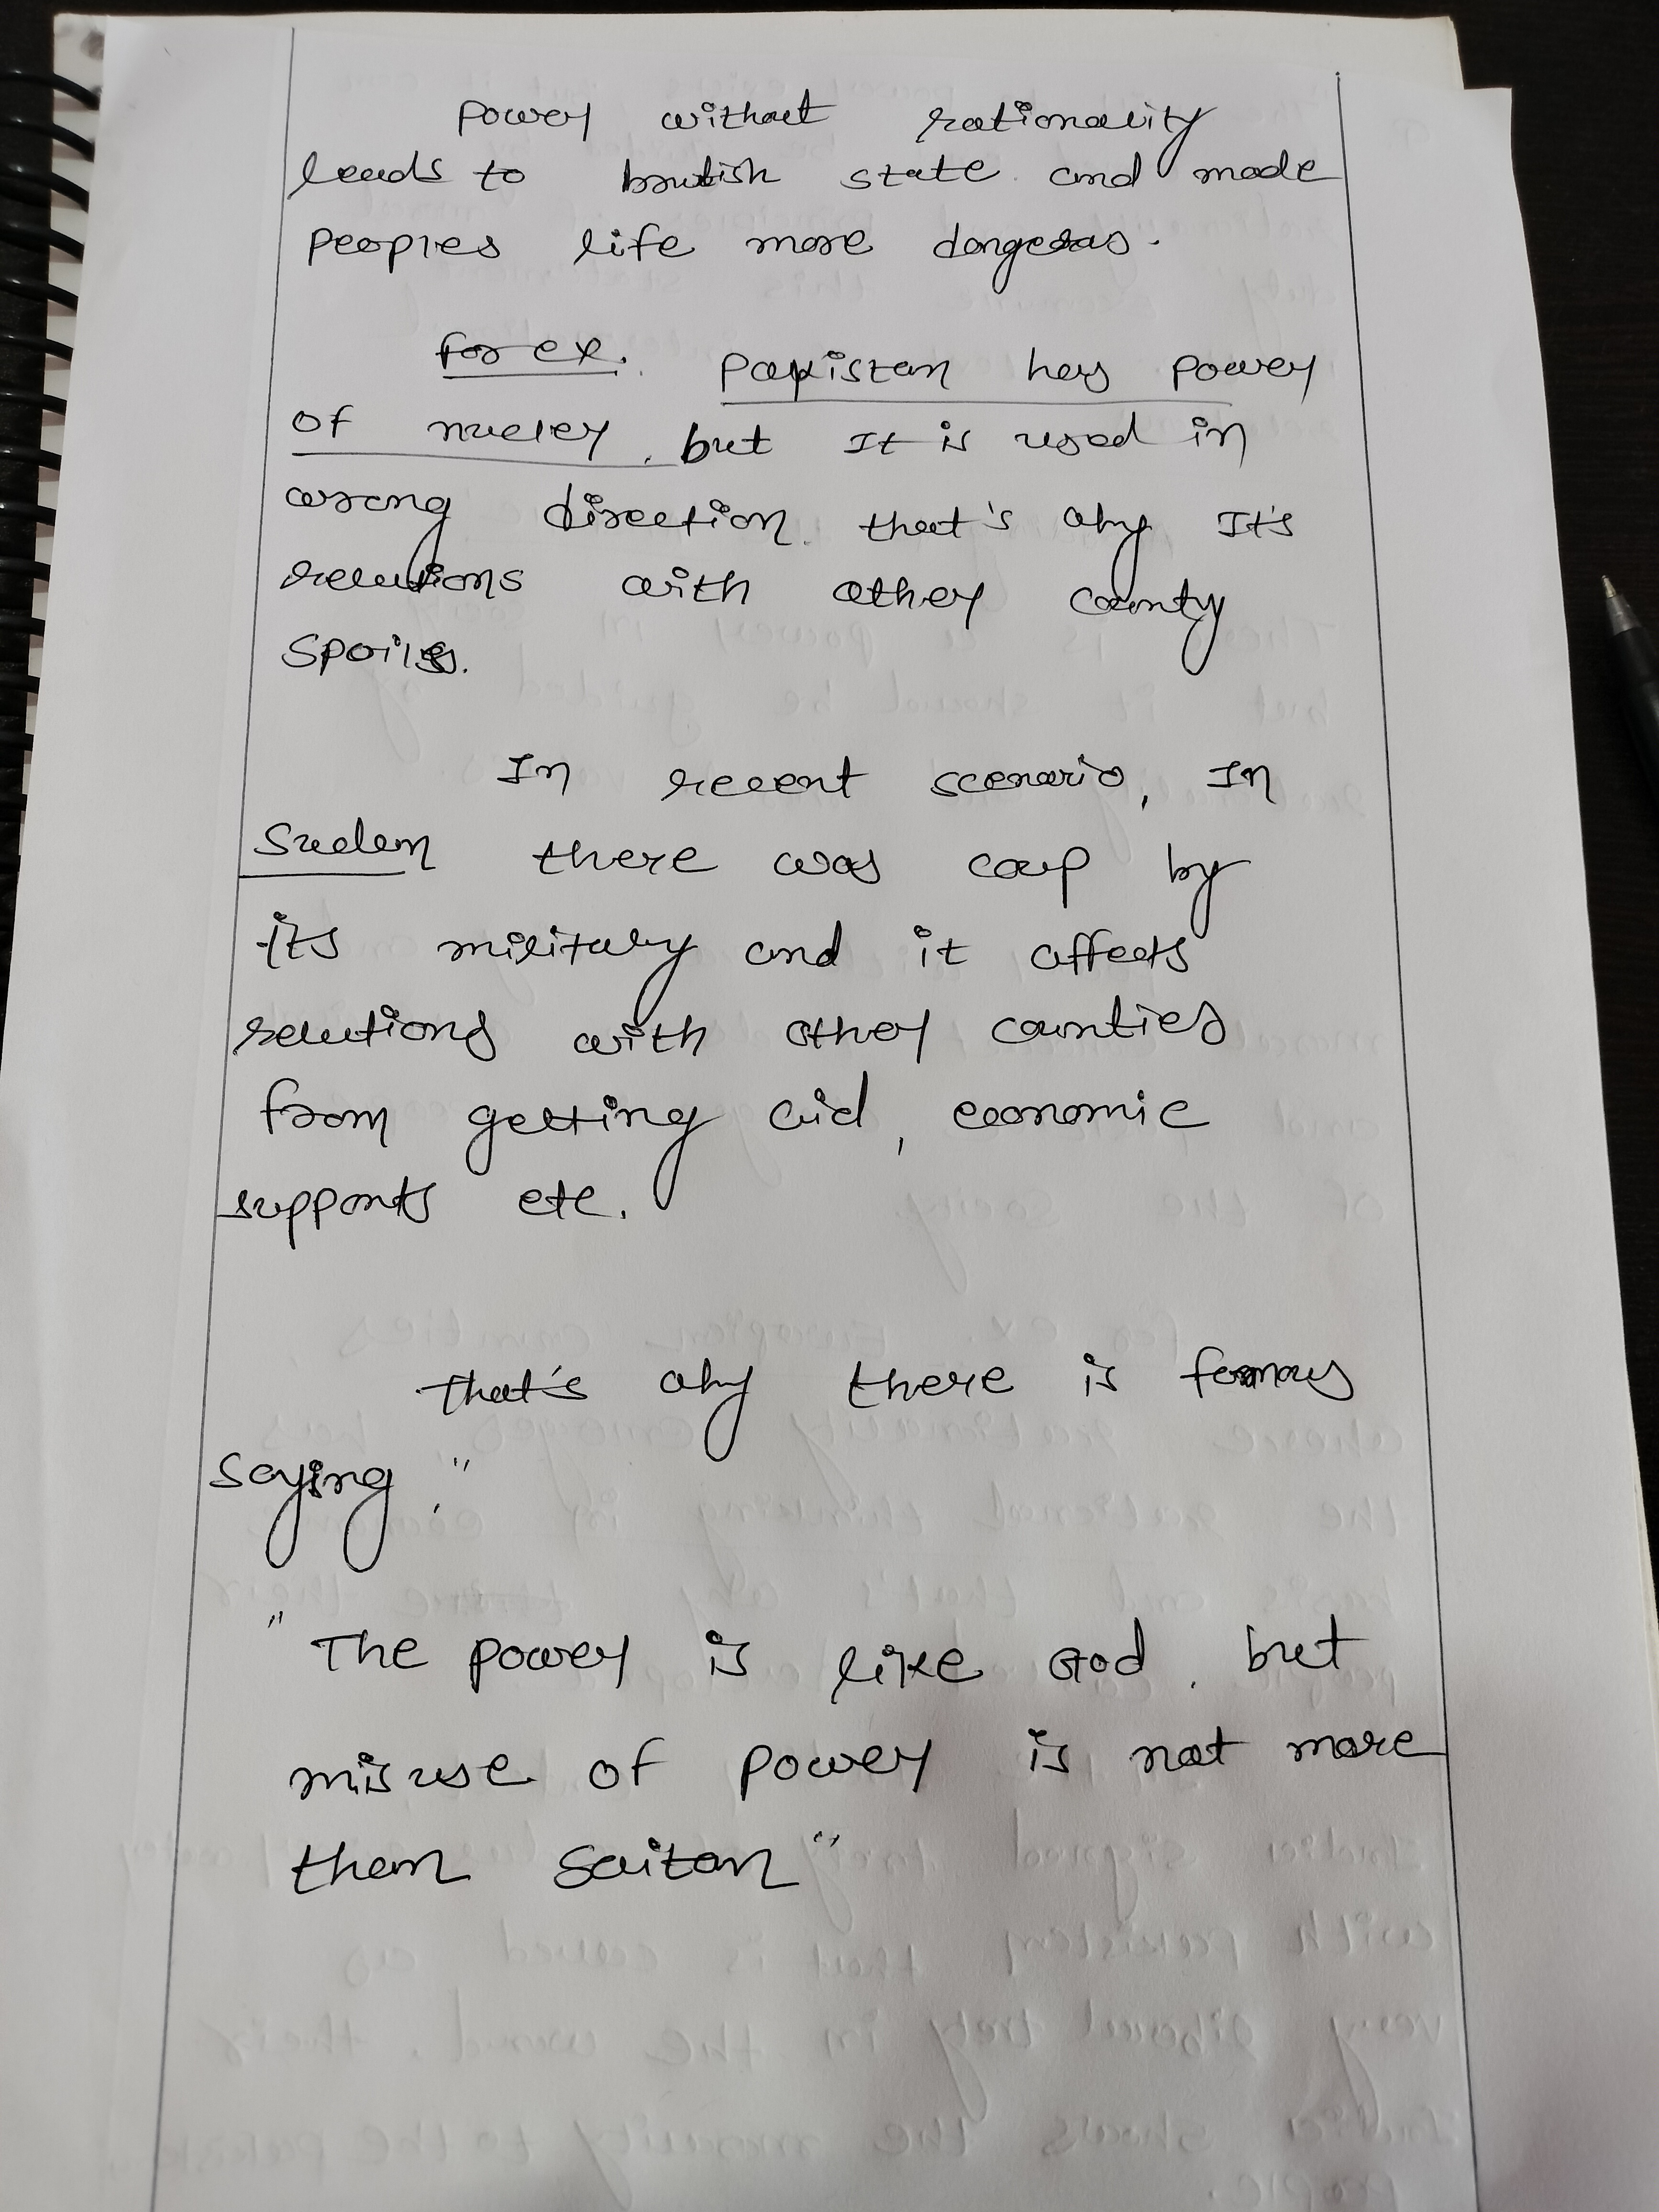 Power without rationality
leads to brutish state and made
peoples life more dangerous.
for ex. Pakistan has power
of nucler, but It is used in
wrong direction that's why It's
relations with other county
spoils.
In recent scenario, In
Sudan there was coup by
its military and it affects
relations with other counties
from getting aid, economic
supports etc.
That's why there is famous
saying,"
"The power is like God, but
misuse of power is not more
than Saitan"